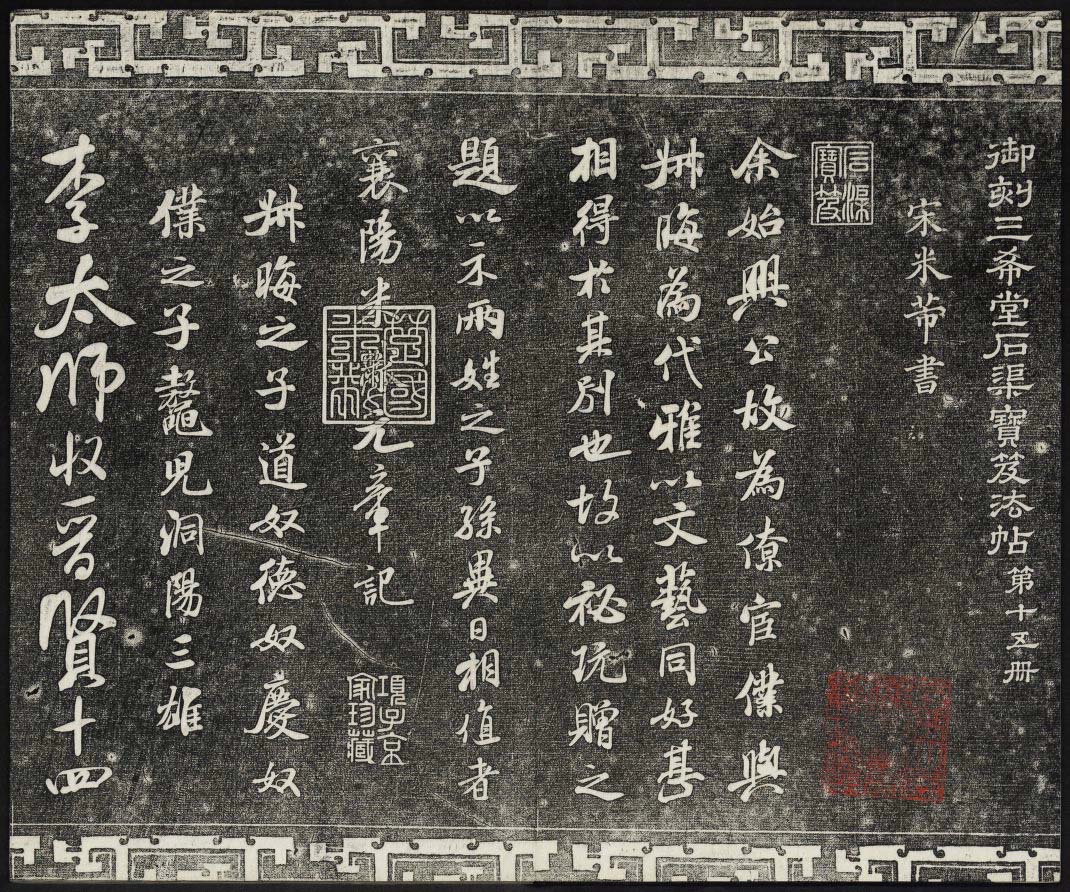 御刻三希堂石渠寶笈法帖 第十五冊
宋米芾書
石渠寶笈
余始興公故為僚宦僕與
叔晦為代雅以文藝同好甚
相得於其別也故以祕玩贈之
題以示兩姓之子孫異日相值者
襄陽米黻元章記
項子京家珍藏
叔晦之子道奴德奴慶奴
僕之子鼇兒洞陽三雄
李太師收晉賢十四